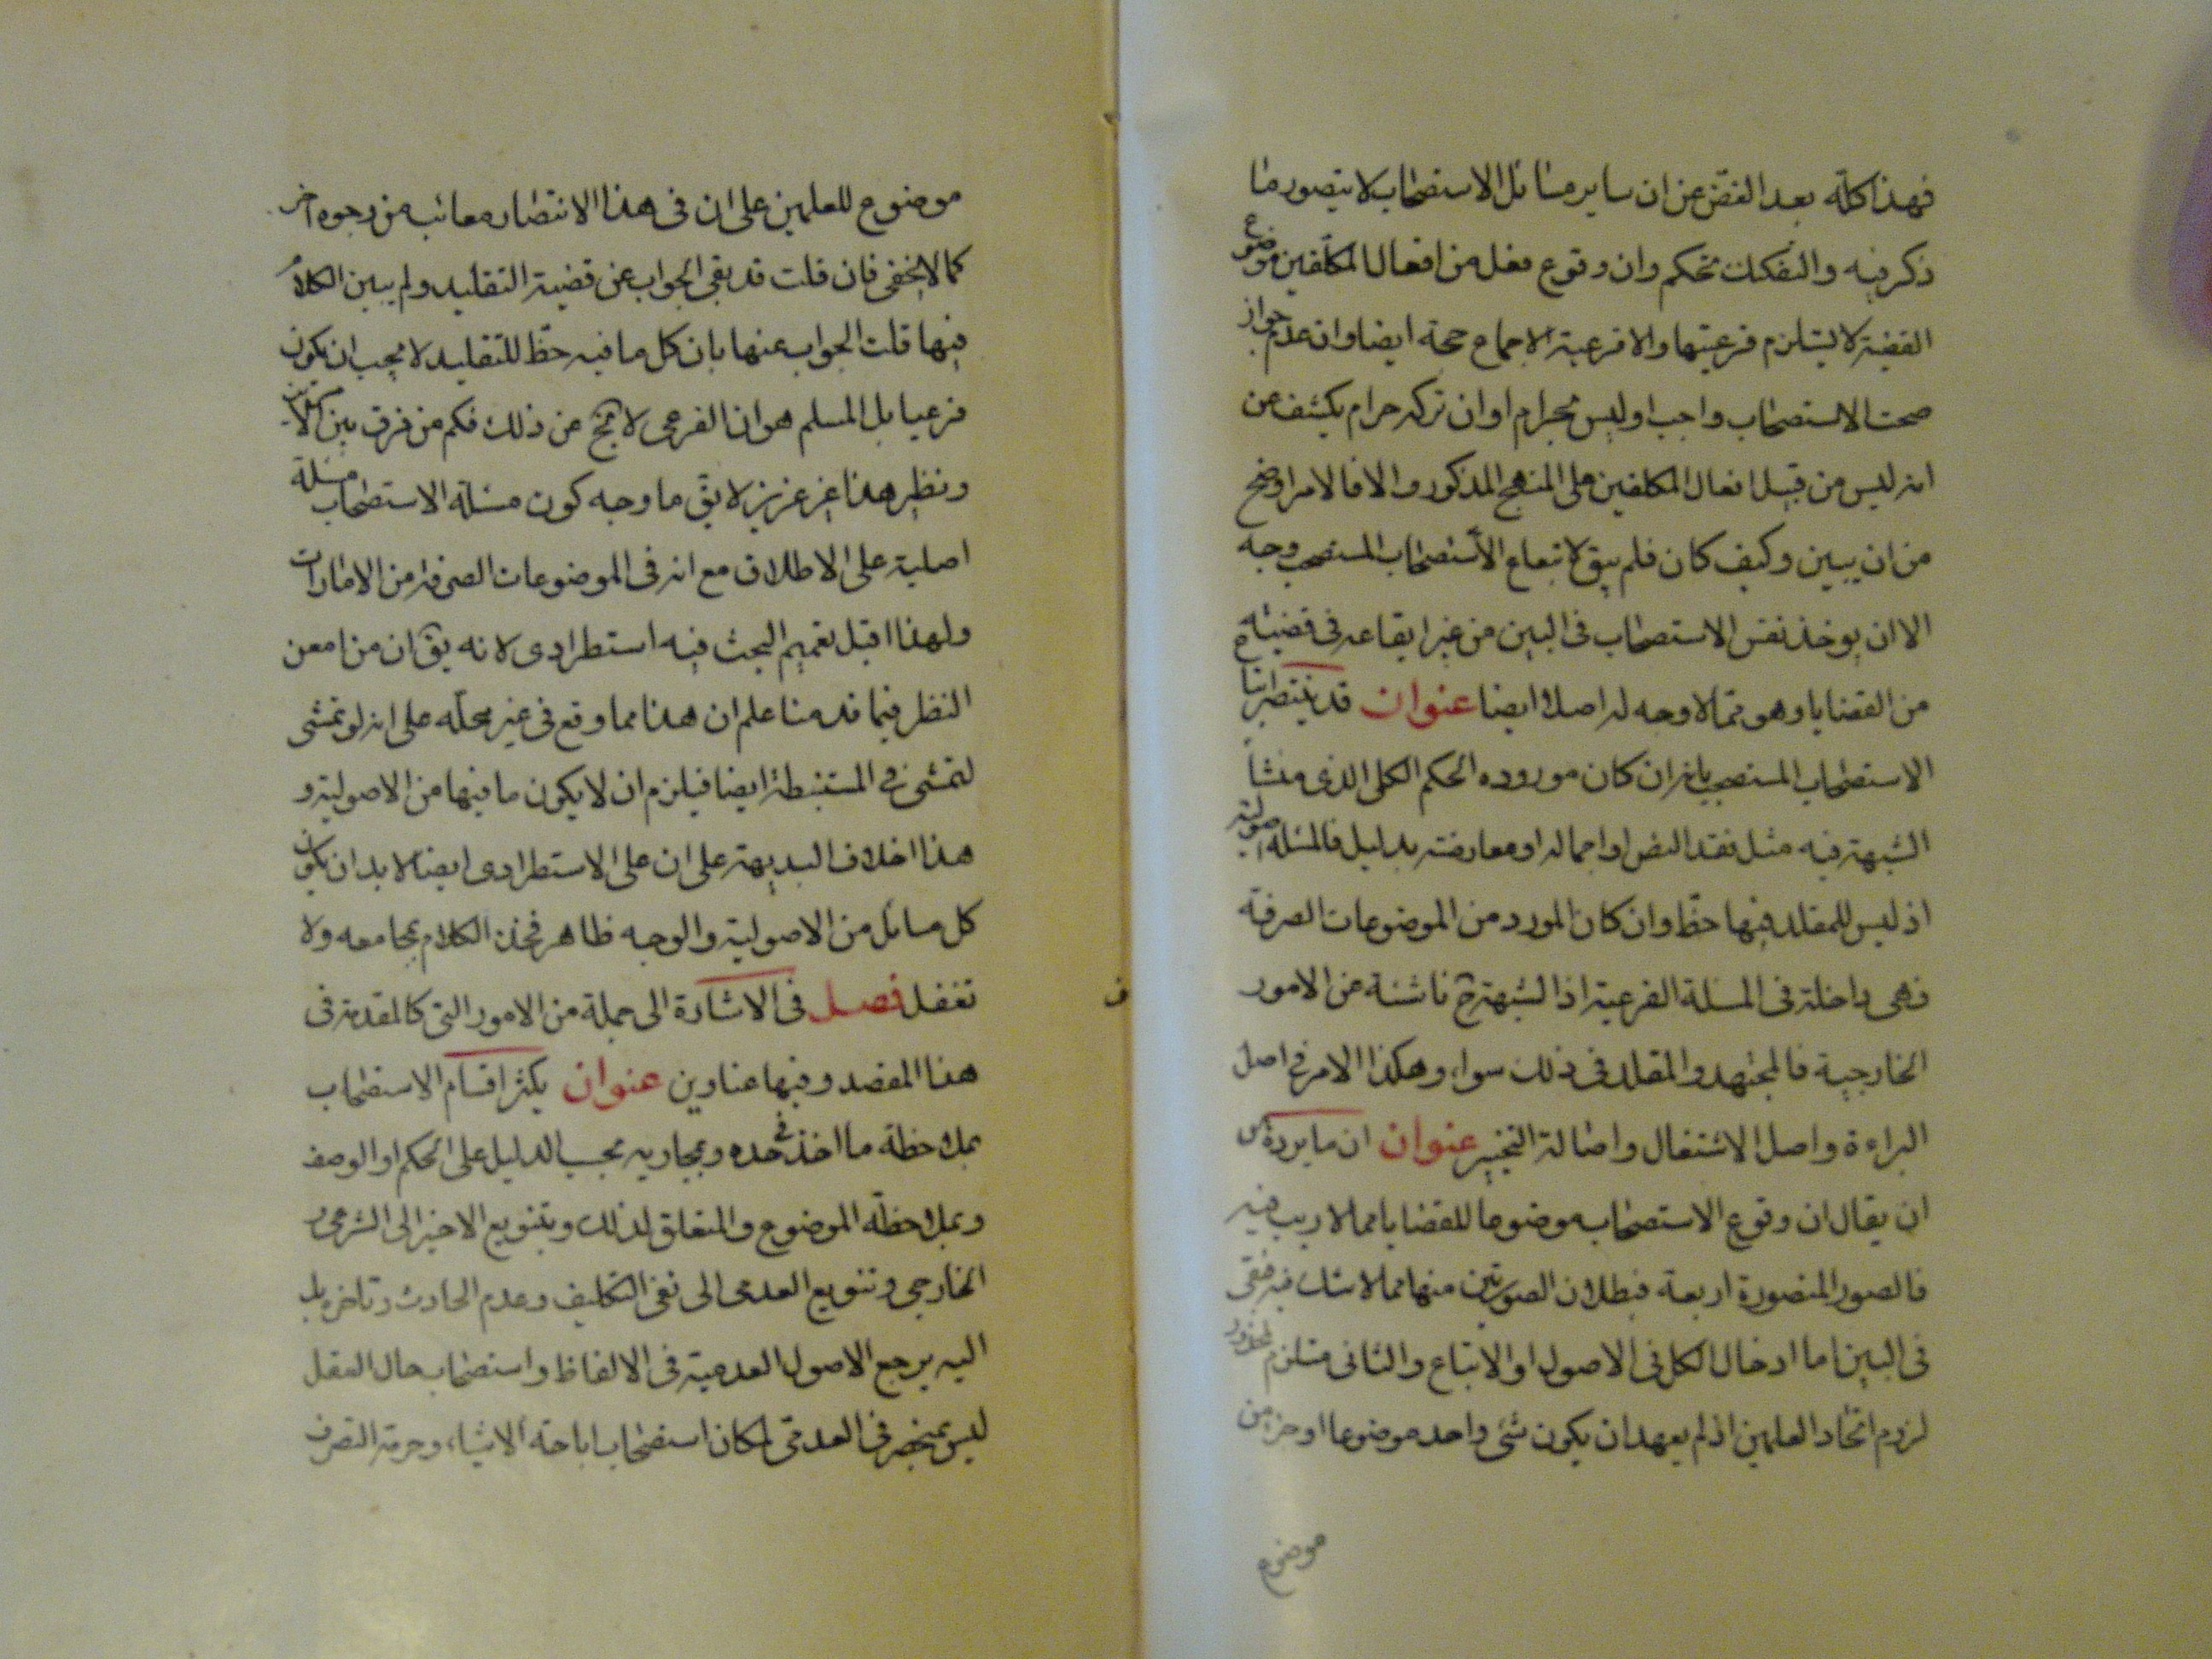 فهذا كله بعد الغض عن ان ساير مسائل الاستصحاب لا يتصور ما
ذكر فيه والتفكيك تحكم وان وقوع فعل من افعال المكلفين موضوع
القضية لا يستلزم فرعيتها والا فرعية الاجماع حجة ايضا وان عدم جواز
صحت الاستصحاب واجب او ليس بحرام او ان تركه حرام يكشف عن
انه ليس من قبيل افعال المكلفين على المنهج المذكور والا فالامر اوضح
من ان يبين وكيف كان فلم يبق لاتباع الاستصحاب المستصحب وجه
الا ان يوخذ نفس الاستصحاب فى البين من غير ايقاعه فى قضية
من القضايا وهو مما لا وجه له اصلا ايضا عنوان قد ينتصر
الاستصحاب المستصحب بانه ان كان مورده الحكم الكلى الذى منشأ
الشبهة فيه مثل فقد النص او اجماله او معارضته بدليل فالمسئلة اصولية
اذ ليس للمقلد فيها حظ وان كان المورد من الموضوعات الصرفة
فهى داخلة فى المسئلة الفرعية اذ الشبهة ح ناشئة عن الامور
الخارجية فالمجتهد والمقلد فى ذلك سواء وهكذا الامر فى اصل
البراءة واصل الاشتغال واصالة التخيير عنوان ان ما يرد
ان يقال ان وقوع الاستصحاب موضوعا للقضايا مما لا ريب فيه
فالصور المتصورة اربعة فبطلان الصورتين منها مما لا شك فيه فبقى
فى البين اما ادخال الكل فى الاصول او الاتباع والثانى مستلزم لمحذور
لزوم اتحاد العلمين اذ لم يعهد ان يكون شئ واحد موضوعا او جزء من
موضوع
موضوع للعلمين على ان فى هذا الانتصار معائب من وجوه اخر
كما لا يخفى فان قلت قد بقى الجواب عن قضية التقليد ولم يبين الكلام
فيها قلت الجواب عنها بان كل ما فيه حظ للتقليد لا يجب ان يكون
فرعيا بل المسلم هو ان الفرعى لا يخ عن ذلك فكم من فرق بين الكلامين
ونظير هذا غير عزيز لا يق ما وجه كون مسئلة الاستصحاب مسئلة
اصلية على الاطلاق مع انه فى الموضوعات الصرفة من الامارات
ولهذا قيل تعميم البحث فيه استطرادى لانه يق ان من امعن
النظر فيما قدمنا علم ان هذا مما وقع فى غير محله على انه لو تمشى
لتمشى فى المستنبطة ايضا فيلزم ان لا يكون ما فيها من الاصولية و
هذا خلاف البديهة على ان على الاستطرادى ايضا لا بد ان يكون
كل مسائل من الاصولية والوجه ظاهر فخذ الكلام بمجامعه ولا
تغفل فصل فى الاشارة الى جملة من الامور التى كالمقدمة فى
هذا المقصد وفيها عناوين عنوان يكثر اقسام الاستصحاب
بملاحظة ما اخذ فى حده ومجاريه بحسب الدليل على الحكم او الوصف
وبملاحظة الموضوع والمتعلق لذلك وبتنويع الاخير الى الشرعى و
الخارجى وتنويع العدمى الى نفى التكليف وعدم الحادث وتاخره بل
اليه يرجع الاصول العدمية فى الالفاظ واستصحاب حال العقل
ليس بمنحصر فى العدمى لمكان استصحاب اباحة الاشياء وحرمة التصرف